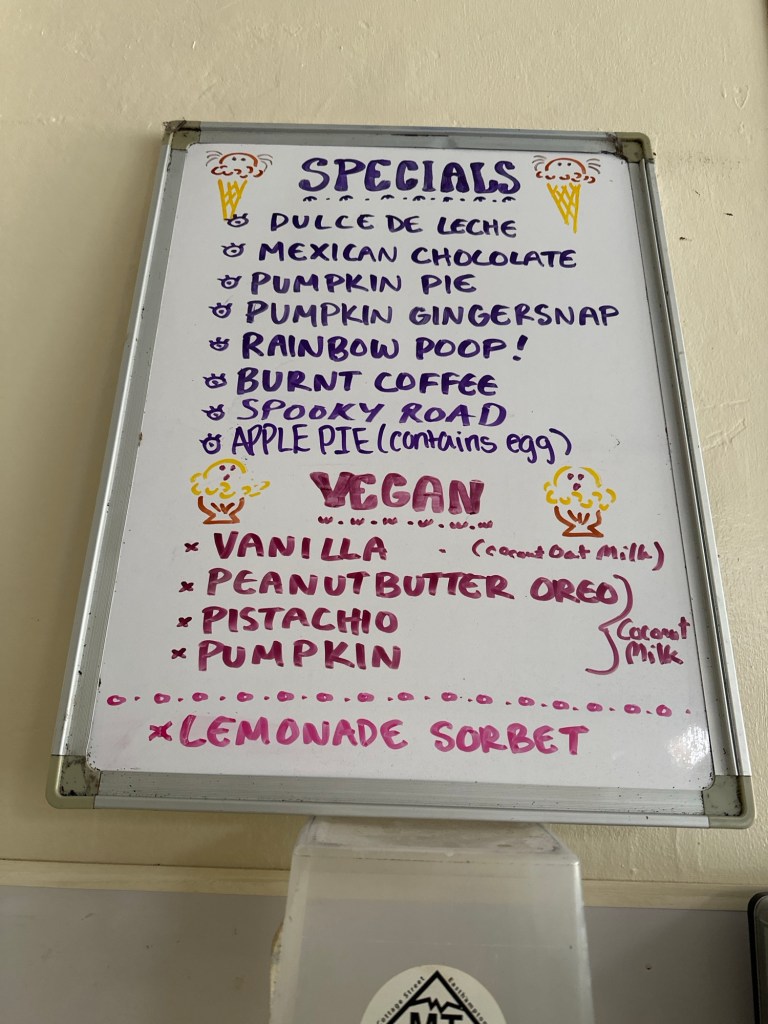 SPECIALS
DULCE DE LECHE
MEXICAN CHOCOLATE
PUMPKIN PIE
PUMPKIN GINGERSNAP
RAINBOW POOP!
BURNT COFFEE
SPOOKY ROAD
APPLE PIE (contains egg)
VEGAN
VANILLA (Coconut Oat Milk)
PEANUT BUTTER OREO
PISTACHIO
PUMPKIN
Coconut
Milk
LEMONADE SORBET
Cottage Street
Easthampton
MT